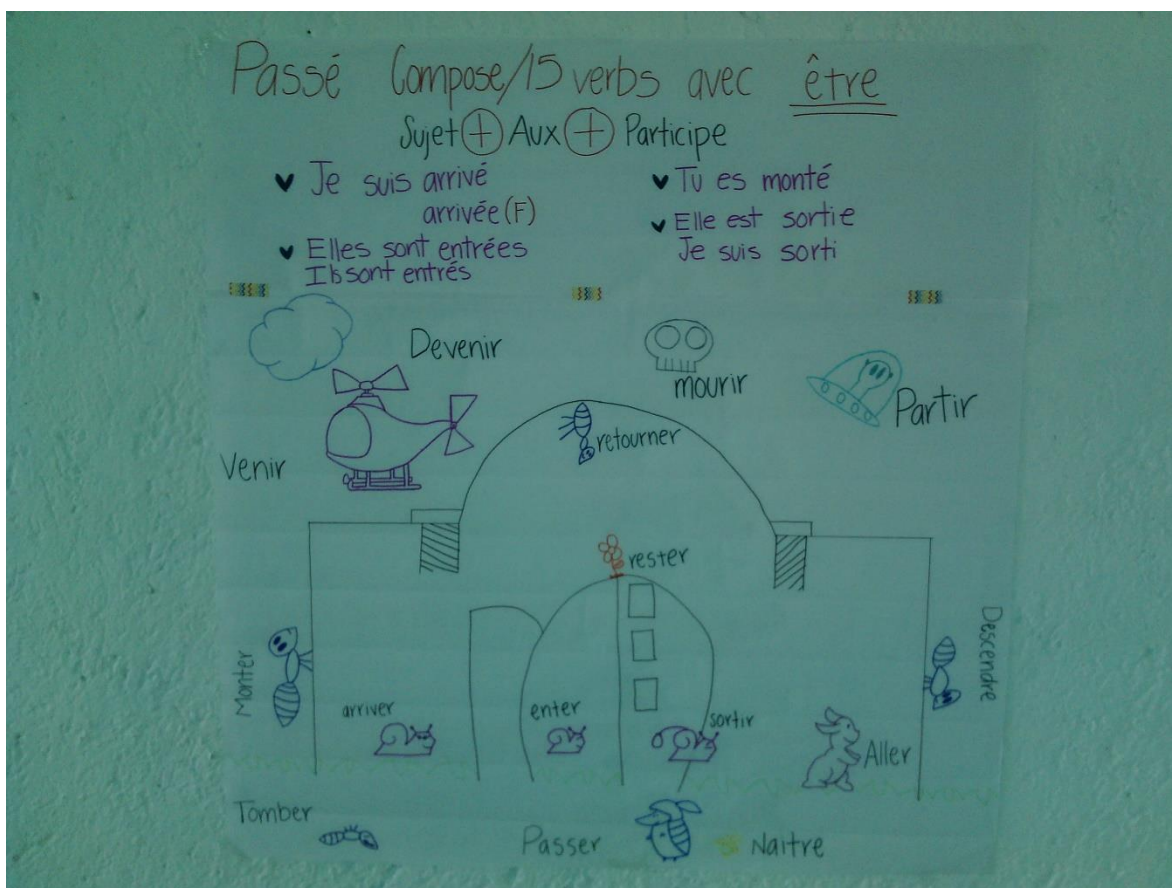 Passé Compose/15 verbs avec être
Sujet + Aux + Participe
Je suis arrivé
arrivée (F)
Elles sont entrées
Ils sont entrés
Tu es monté
Elle est sortie
Je suis sorti
Devenir
mourir
Partir
Venir
retourner
rester
Monter
Descendre
arriver
enter
sortir
Aller
Tomber
Passer
Naitre